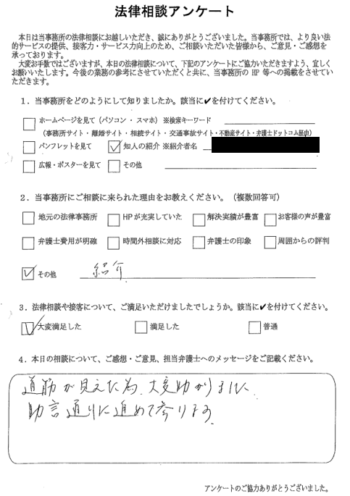 法律相談アンケート
本日は当事務所の法律相談にお越しいただき、誠にありがとうございました。当事務所では、より良い法
的サービスの提供、接客力・サービス力向上のため、ご相談いただいた皆様から、ご意見・ご感想を
承っております。
大変お手数ではございますが、本日の法律相談について、下記のアンケートにご協力いただきますよう、宜しく
お願いいたします。今後の業務の参考にさせていただくと共に、当事務所のHP等への掲載をさせていた
だきます。
1.当事務所をどのようにして知りましたか。該当に✔を付けてください。
ホームページを見て（パソコン・スマホ）※検索キーワード
（事務所サイト・離婚サイト・相続サイト・交通事故サイト・不動産サイト・弁護士ドットコム経由）
パンフレットを見て ✓ 知人の紹介 ※紹介者名
広報・ポスターを見て その他
2.当事務所にご相談に来られた理由をお教えください。（複数回答可）
地元の法律事務所 HPが充実していた 解決実績が豊富 お客様の声が豊富
弁護士費用が明確 時間外相談に対応 弁護士の印象 周囲からの評判
✓ その他 紹介
3.法律相談や接客について、ご満足いただけましたでしょうか。該当に✔を付けてください。
✓ 大変満足した 満足した 普通
4.本日の相談について、ご感想・ご意見、担当弁護士へのメッセージをご記載ください。
道筋が見えた為、大変助かりました。
助言通りに進めて参ります。
アンケートのご協力ありがとうございました。